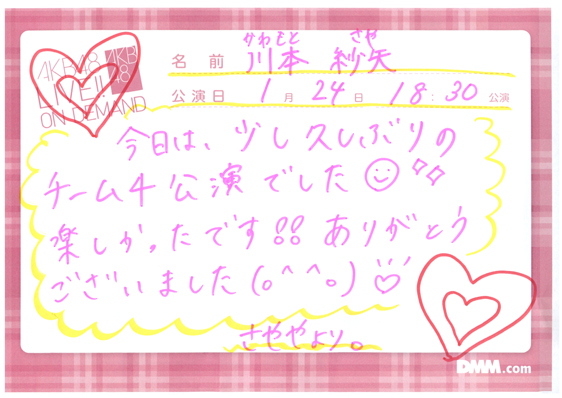 AKB48
LIVE!!
ON DEMAND
AKB
48
かわもと さや
名前 川本 紗矢
公演日 1月 24日 18:30 公演
今日は、少し久しぶりの
チーム4公演でした
楽しかったです!! ありがとう
ございました(。^^。)
さややより。
DMM.com